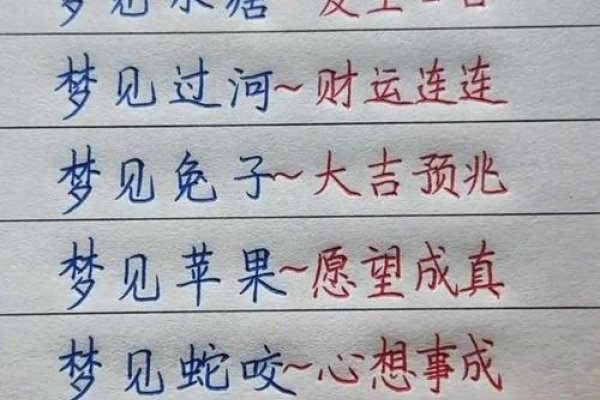 梦见过河~财运连连
梦见兔子~大吉预兆
梦见苹果~愿望成真
梦见蛇咬~心想事成